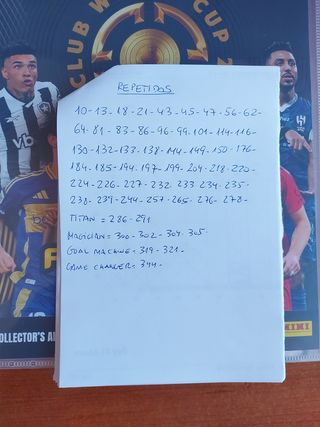 CLUB WORLD CUP 2
REPETIDOS
10-13-18-21-43-45-47-56-62-
64-81-83-86-96-99-101-114-116-
130-132-133-138-144-149-150-176-
184-185-194-197-199-204-218-220-
224-226-227-232-233-234-235-
238-239-244-257-265-276-278-
TITAN = 286-291
MAGICIAN = 300-302-304-305
GOAL MACHINE = 319-321-
GAME CHANGER = 344-
COLLECTOR'S A
PANINI